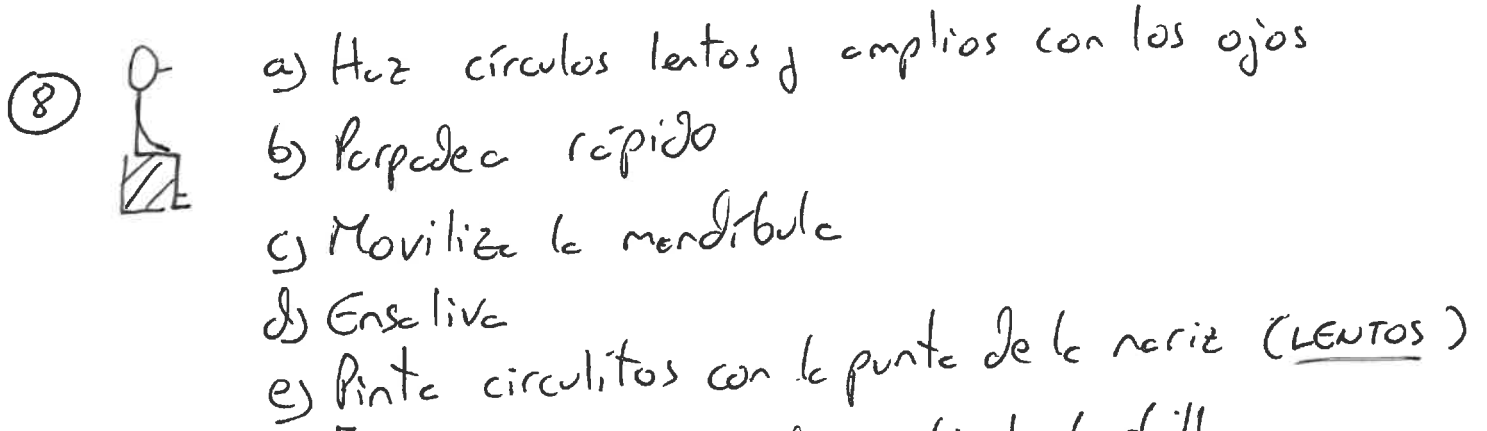 8
a) Haz círculos lentos y amplios con los ojos
b) Parpadea rápido
c) Moviliza la mandíbula
d) Ensaliva
e) Pinta circulitos con la punta de la nariz (LENTOS)